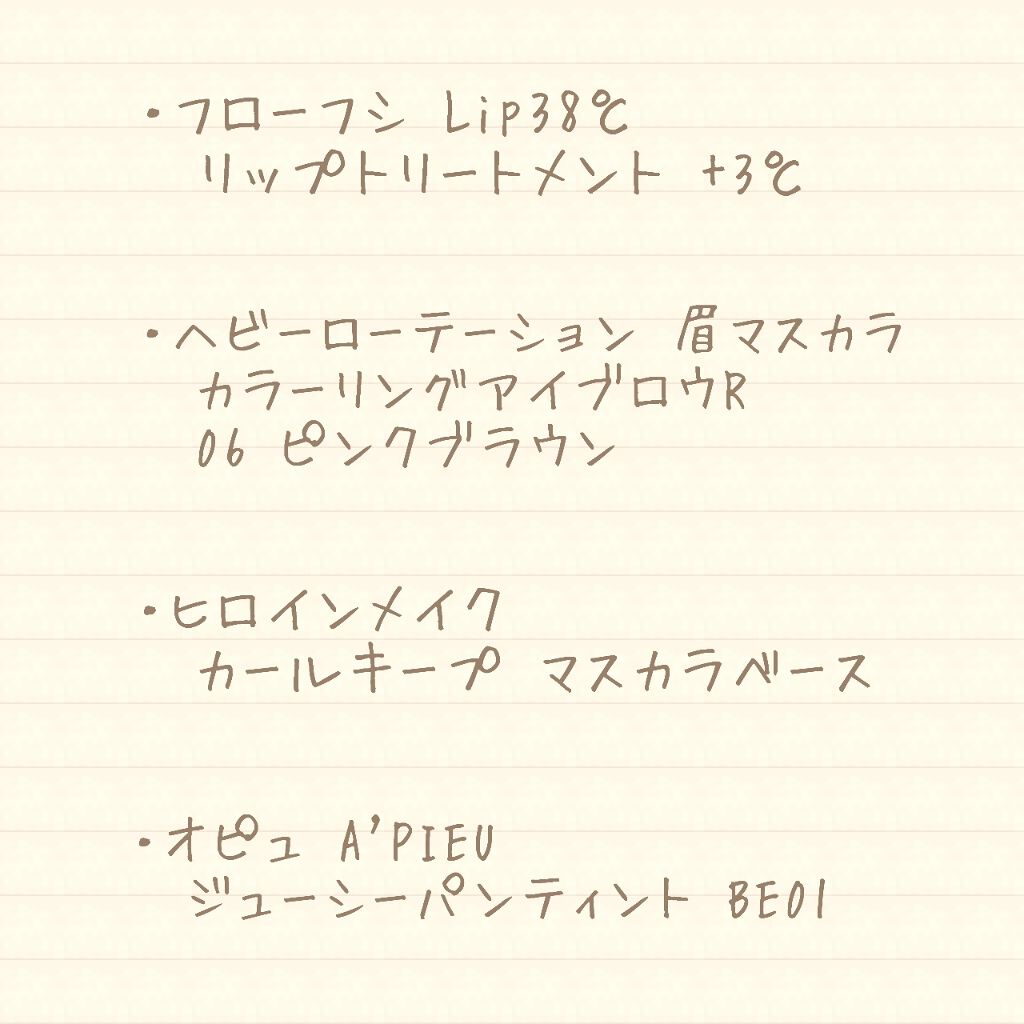 ・フローフシ Lip38℃
リップトリートメント +3℃
・ヘビーローテーション 眉マスカラ
カラーリングアイブロウR
06 ピンクブラウン
・ヒロインメイク
カールキープ マスカラベース
・オピュ A'PIEU
ジューシーパンティント BE01